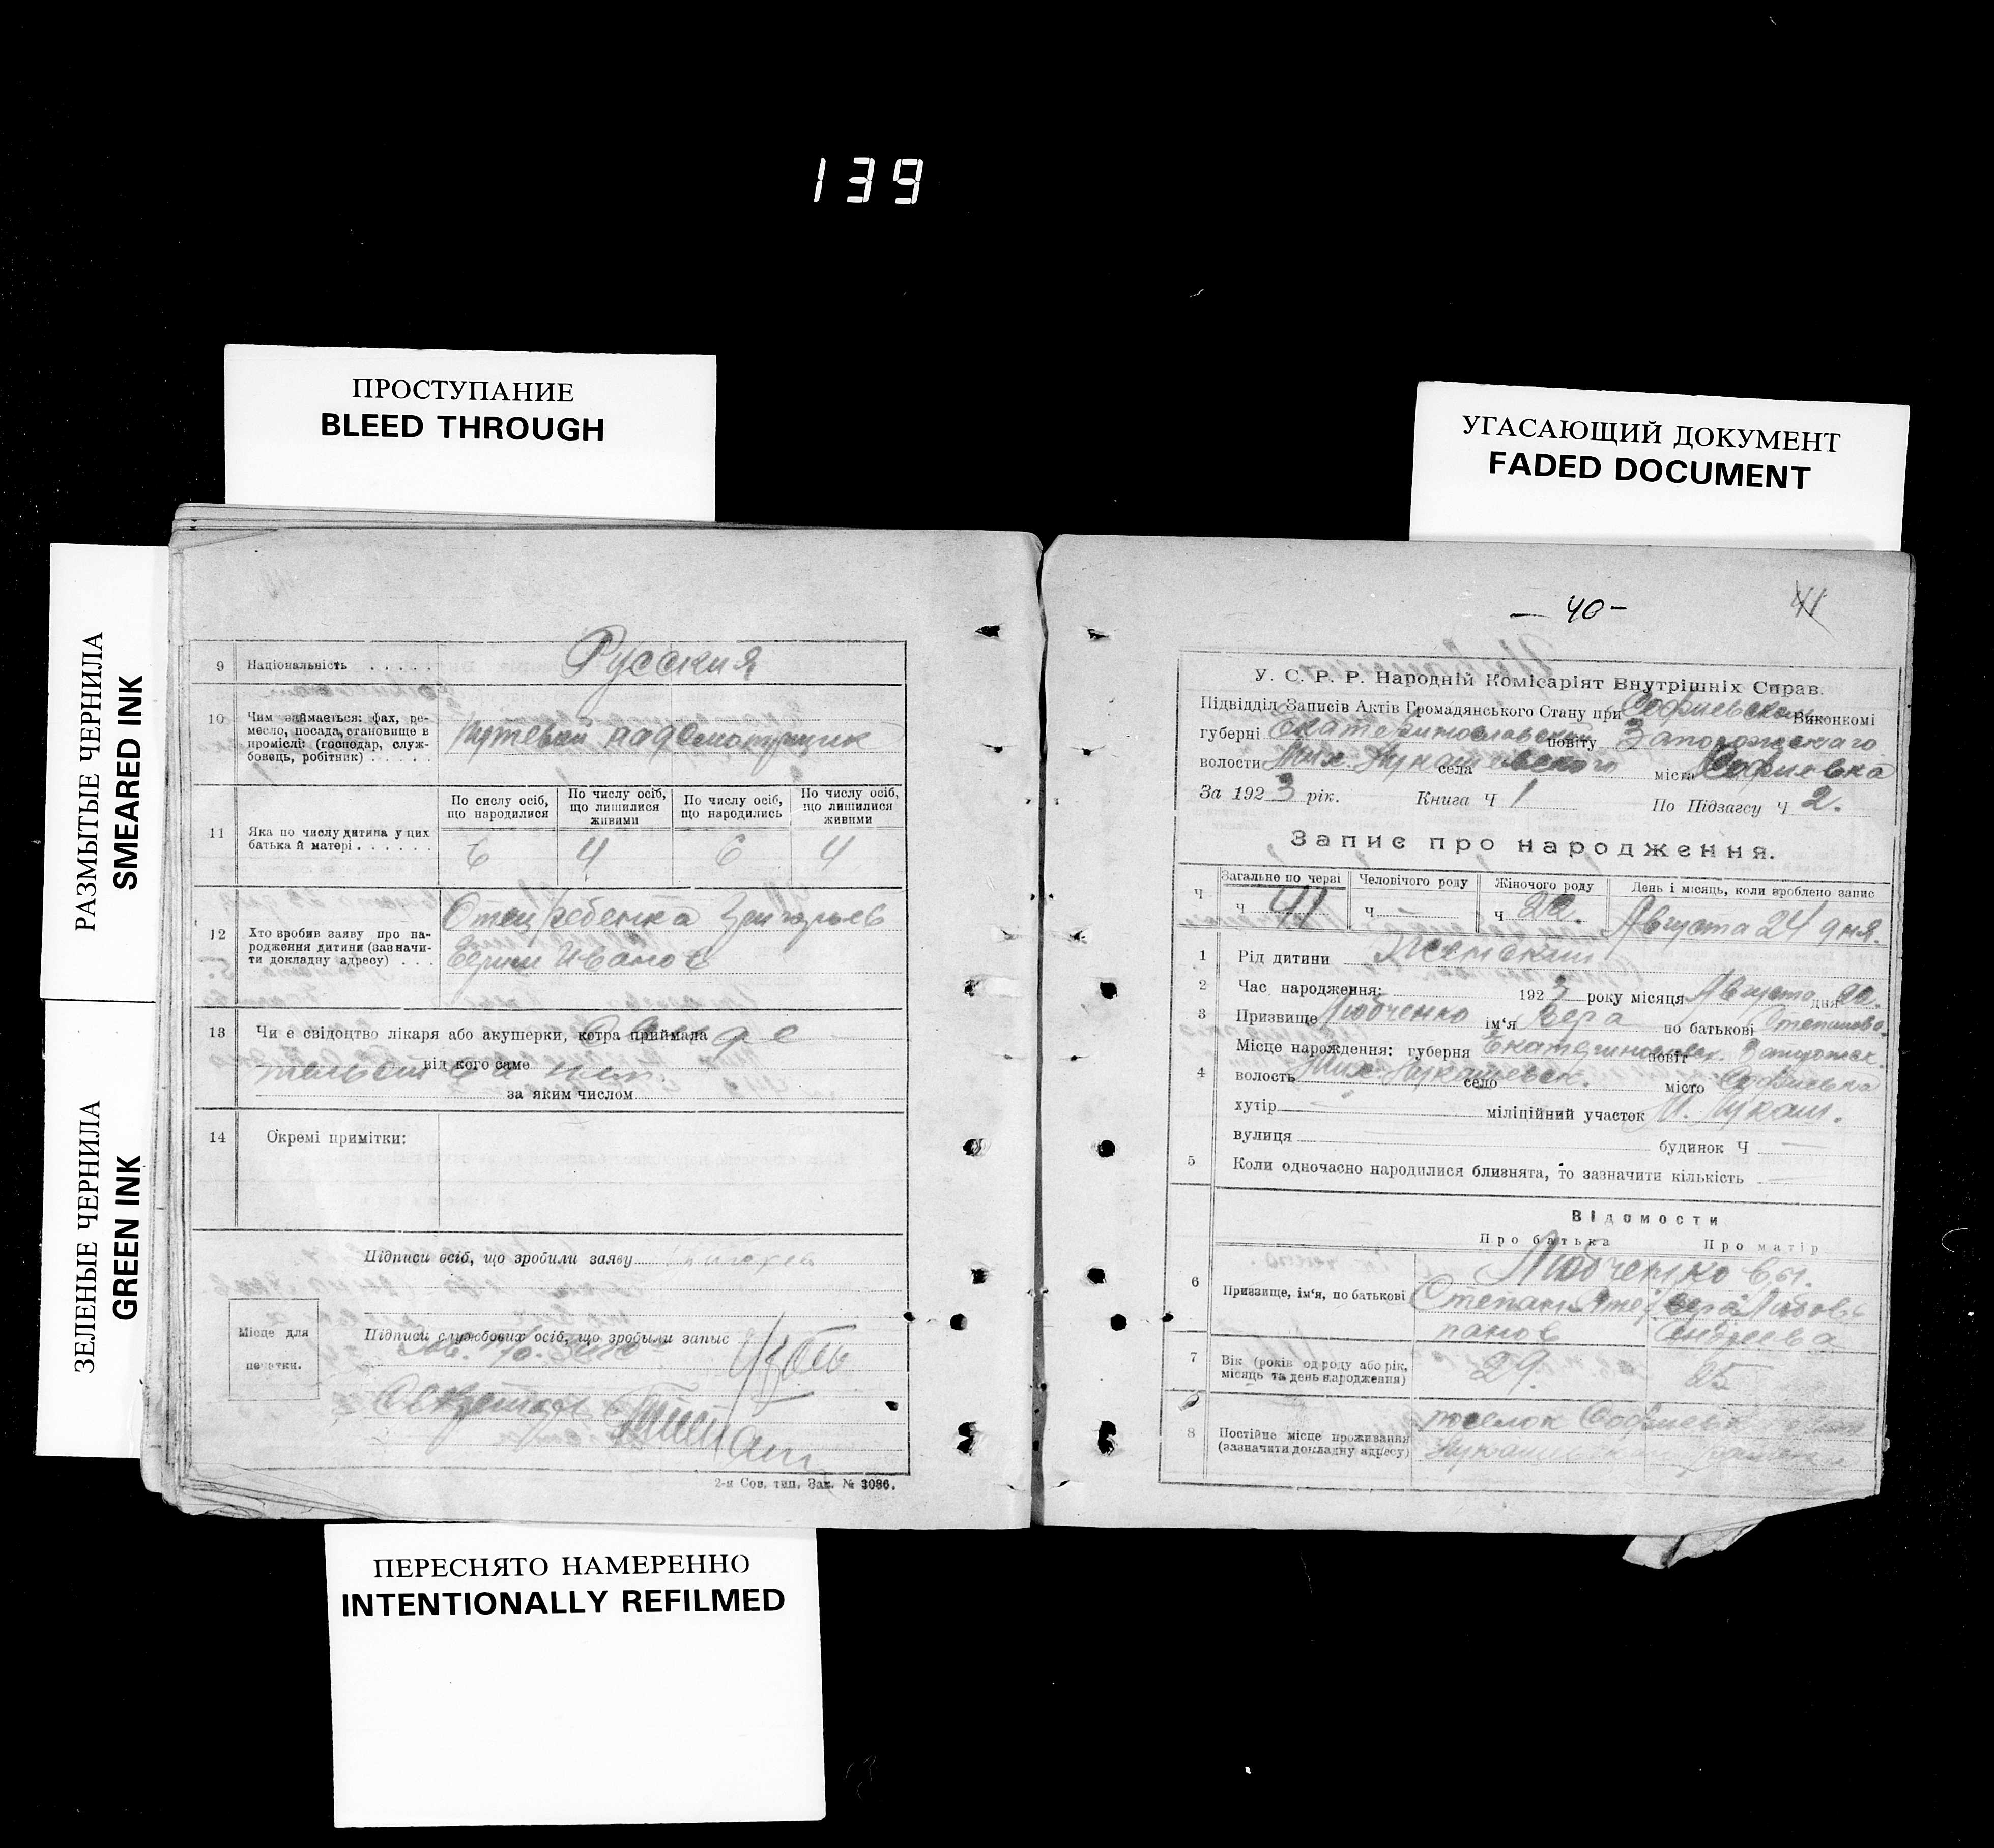 139
ПРОСТУПАНИЕ
BLEED THROUGH
УГАСАЮЩИЙ ДОКУМЕНТ
FADED DOCUMENT
РАЗМЫТЫЕ ЧЕРНИЛА
SMEARED INK
ЗЕЛЕНЫЕ ЧЕРНИЛА
GREEN INK
9 Національність . . . . . Русския
10 Чим займається: фах, ре-
месло, посада, становище в
проміслі: (господар, служ-
бовець, робітник) . . . . .
Путевой
11 Яка по числу дитина у цих
батька й матері . . . . . .
По сислу осіб, що народилися
По числу осіб, що лишилися живими
По числу осіб, що народились
По числу осіб, що лишилися живими
6 4 6 4
12 Хто зробив заяву про на-
родження дитини (зазначи-
ти докладну адресу) . . .
Отец ребенка Григорьев
Иванов
13 Чи є свідоцтво лікаря або акушерки, котра приймала
від кого саме
за яким числом
14 Окремі примітки:
Підписи осіб, що зробили заяву
Місце для
печатки.
Підписи службових осіб, що зробыли запыс
Секретарь
2-я Сов. тип. Зак. № 3086.
— 40 —
41
У. С. Р. Р. Народній Комісаріят Внутрішніх Справ.
Підвідділ Записів Актів Громадянського Стану при Софиевском Виконкомі
губерні Екатеринославской повіту Запорожскаго
волости Мих. Лукашевского села міста Софиевка
За 1923 рік. Книга Ч 1 По Підзагсу Ч 2.
Запис про народження.
Ч
Загальне по черві
Человічого роду
Жіночого роду
День і місяць, коли зроблено запис
ч 41 ч ч 22. Августа 24 дня.
1 Рід дитини Женский
2 Час народження: 1923 року місяця Августа дня 22.
3 Призвище Любченко ім'я Вера по батькові Степанова
4 Місце нарождення: губерня Екатеринославск. повіт Запорожск.
волость Мих-Лукашевск. село місто Софиевка
хутір міліційний участок М. Лукаш.
вулиця будинок Ч
5 Коли одночасно народилися близнята, то зазначити кількість
Відомости
Про батька Про матір
6 Призвище, ім'я, по батькові
Любченко
Степан Сте
панов
Андреева
7 Вік (років од роду або рік,
місяць та день народження)
29. 25
8 Постійне місце проживання
(зазначити докладну адресу)
поселок Софиевк
ПЕРЕСНЯТО НАМЕРЕННО
INTENTIONALLY REFILMED